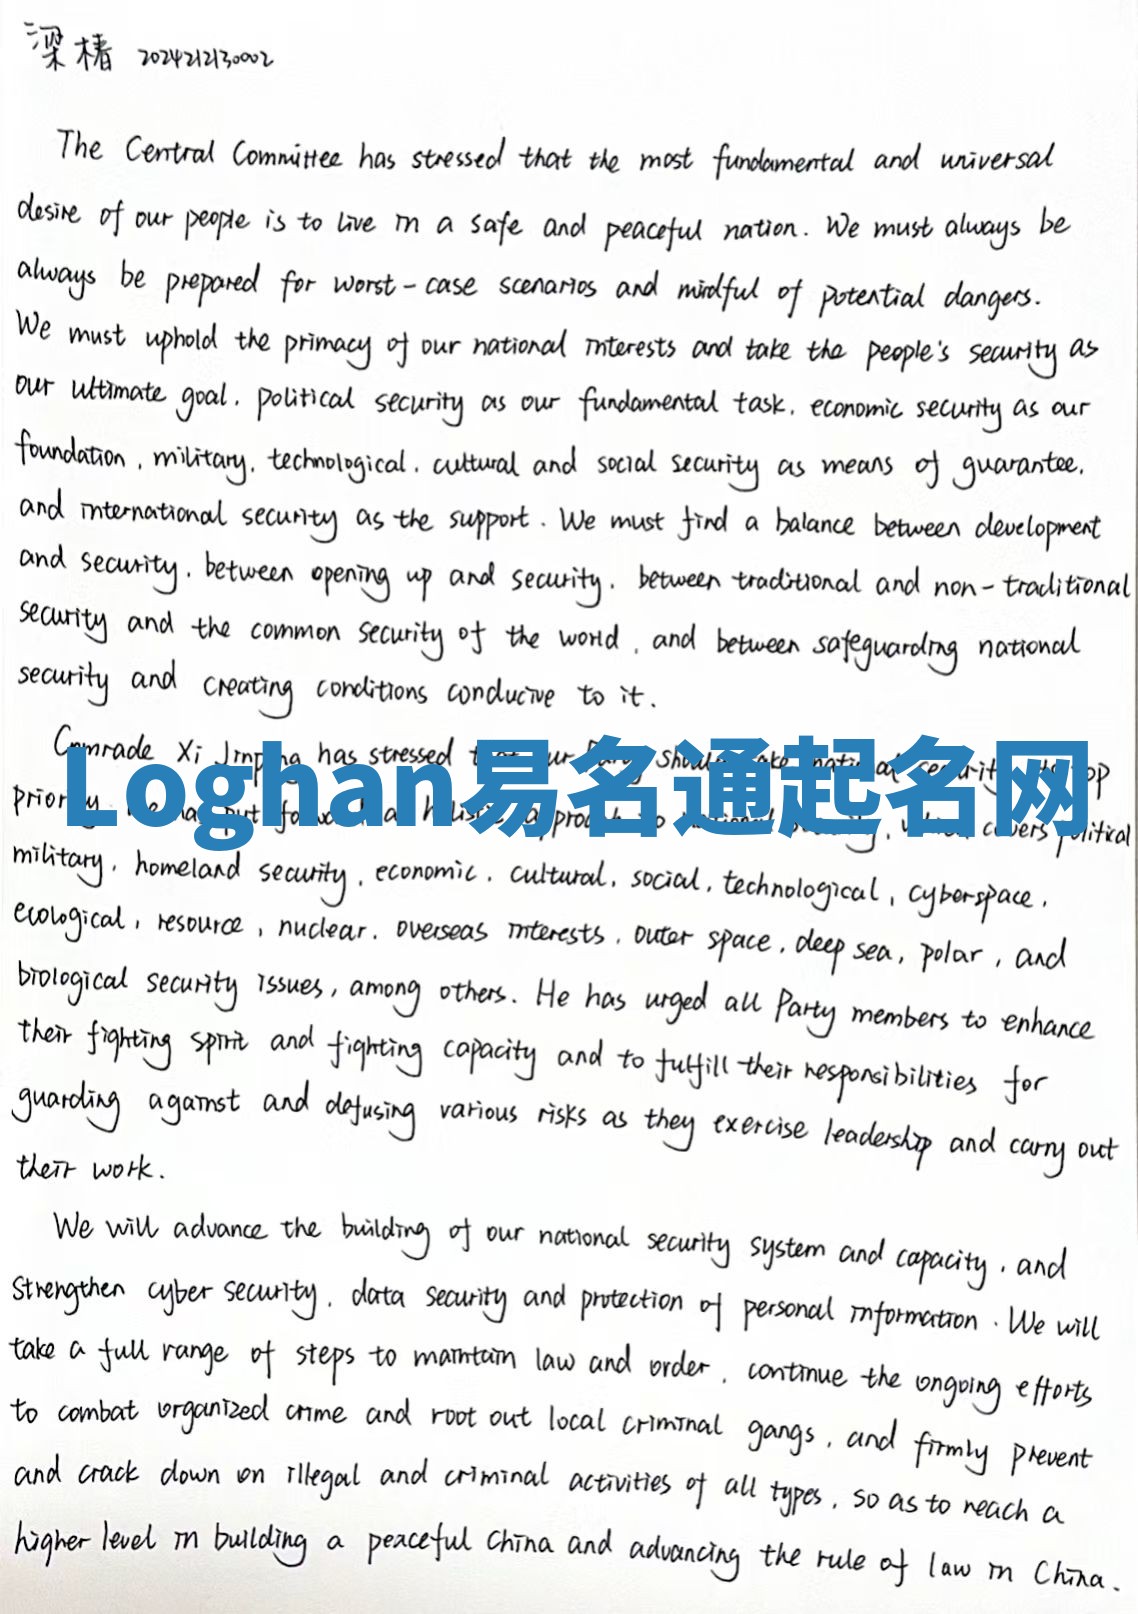 梁椿 2024212130002
The Central Committee has stressed that the most fundamental and universal
desire of our people is to live in a safe and peaceful nation. We must always be
always be prepared for worst-case scenarios and mindful of potential dangers.
We must uphold the primacy of our national interests and take the people's security as
our ultimate goal, political security as our fundamental task, economic security as our
foundation, military, technological, cultural and social security as means of guarantee,
and international security as the support. We must find a balance between development
and security, between opening up and security, between traditional and non-traditional
security and the common security of the world, and between safeguarding national
security and creating conditions conducive to it.
Comrade Xi Jinping has stressed that our Party should take national security its top
Loghan易名通起名网
priority. He has put forward a holistic approach to national security, which covers political
military, homeland security, economic, cultural, social, technological, cyberspace,
ecological, resource, nuclear, overseas interests, outer space, deep sea, polar, and
biological security issues, among others. He has urged all Party members to enhance
their fighting spirit and fighting capacity and to fulfill their responsibilities for
guarding against and defusing various risks as they exercise leadership and carry out
their work.
We will advance the building of our national security system and capacity, and
strengthen cyber security, data security and protection of personal information. We will
take a full range of steps to maintain law and order, continue the ongoing efforts
to combat organized crime and root out local criminal gangs, and firmly prevent
and crack down on illegal and criminal activities of all types, so as to reach a
higher level in building a peaceful China and advancing the rule of law in China.